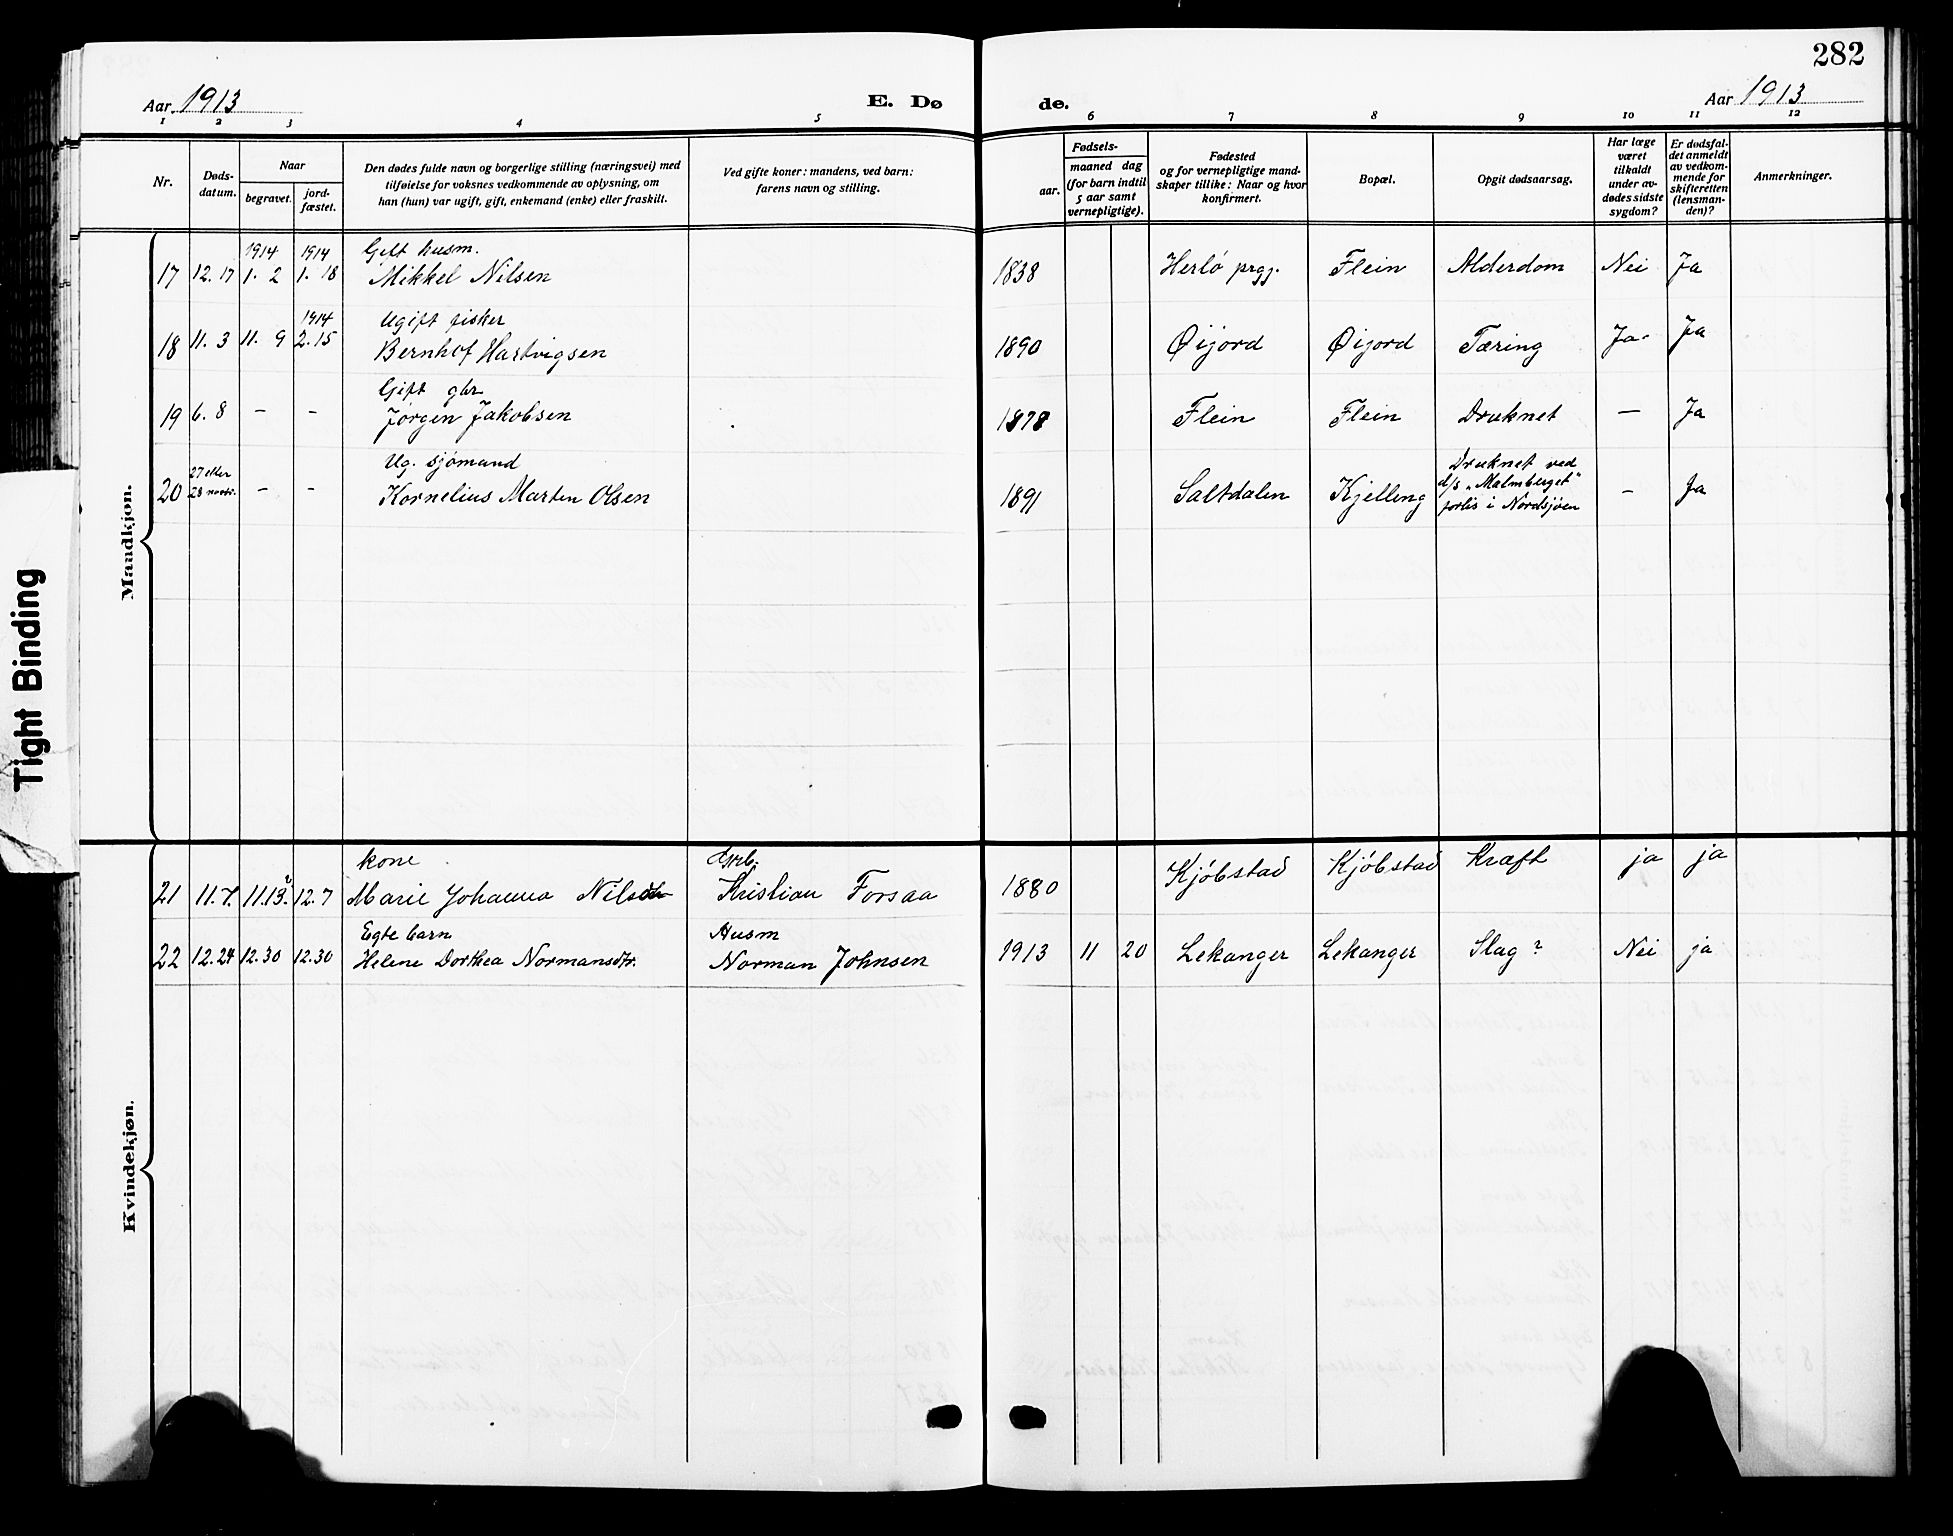 282
Aar 1913
E. Dø
de.
Aar 1913
1 2 3 4 5 6 7 8 9 10 11 12
Nr.
Døds-
datum.
Naar
begravet.
jord-
fæstet.
Den dødes fulde navn og borgerlige stilling (næringsvei) med
tilføielse for voksnes vedkommende av oplysning, om
han (hun) var ugift, gift, enkemand (enke) eller fraskilt.
Ved gifte koner: mandens, ved barn:
farens navn og stilling.
Fødsels-
aar.
maaned dag
(for barn indtil
5 aar samt
vernepligtige).
Fødested
og for vernepligtige mand-
skaper tillike: Naar og hvor
konfirmert.
Bopæl.
Opgit dødsaarsag.
Har læge
været
tilkaldt
under av-
dødes sidste
sygdom?
Er dødsfal-
det anmeldt
av vedkom-
mende for
skifteretten
(lensman-
den)?
Anmerkninger.
Mandkjøn.
1914 1914 Gift husm.
17 12. 17 1. 2 1. 18 Mikkel Nilsen 1838 Herlö prgj. Flein Alderdom Nei Ja
1914 Ugift fisker
18 11. 3 11. 9 2. 15 Bernhof Hartvigsen 1890 Øijord Øijord Tæring Ja Ja
Gift gbr
19 6. 8 – – Jörgen Jakobsen 1878 Flein Flein Druknet – Ja
27 eller
28 novbr.
Ug. sjömand
20 – – Kornelius Marten Olsen 1891 Saltdalen Kjelling
Druknet ved
d/s "Malmberget"
forlis i Nordsjöen
– Ja
Kvindekjøn.
kone Gbr.
21 11. 7. 11. 13. 12. 7 Marie Johanna Nilsdtr Kristian Forsaa 1880 Kjöbstad Kjöbstad Kræft ja ja
Egte barn Husm
22 12. 24 12. 30 12. 30 Helene Dorthea Normansdtr. Norman Johnsen 1913 11 20 Lekanger Lekanger Slag? Nei ja
Tight Binding